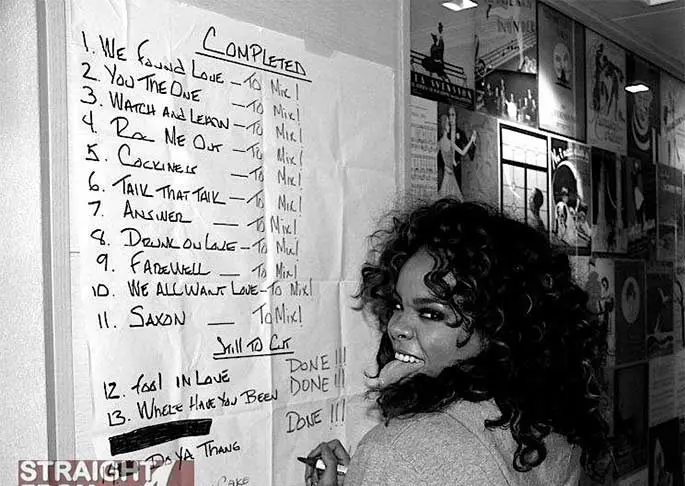 COMPLETED
1. WE FOUND LOVE – TO MIX!
2. YOU THE ONE – TO MIX!
3. WATCH AND LEARN – TO MIX!
4. ROC ME OUT – TO MIX!
5. COCKINESS – TO MIX!
6. TALK THAT TALK – TO MIX!
7. ANSWER – TO MIX!
8. DRUNK ON LOVE – TO MIX!
9. FAREWELL – TO MIX!
10. WE ALL WANT LOVE – TO MIX!
11. SAXON – TO MIX!
STILL TO CUT
12. FOOL IN LOVE DONE !!!
13. WHERE HAVE YOU BEEN DONE !!!
DONE !!!
DO YA THANG
CAKE
STRAIGHT